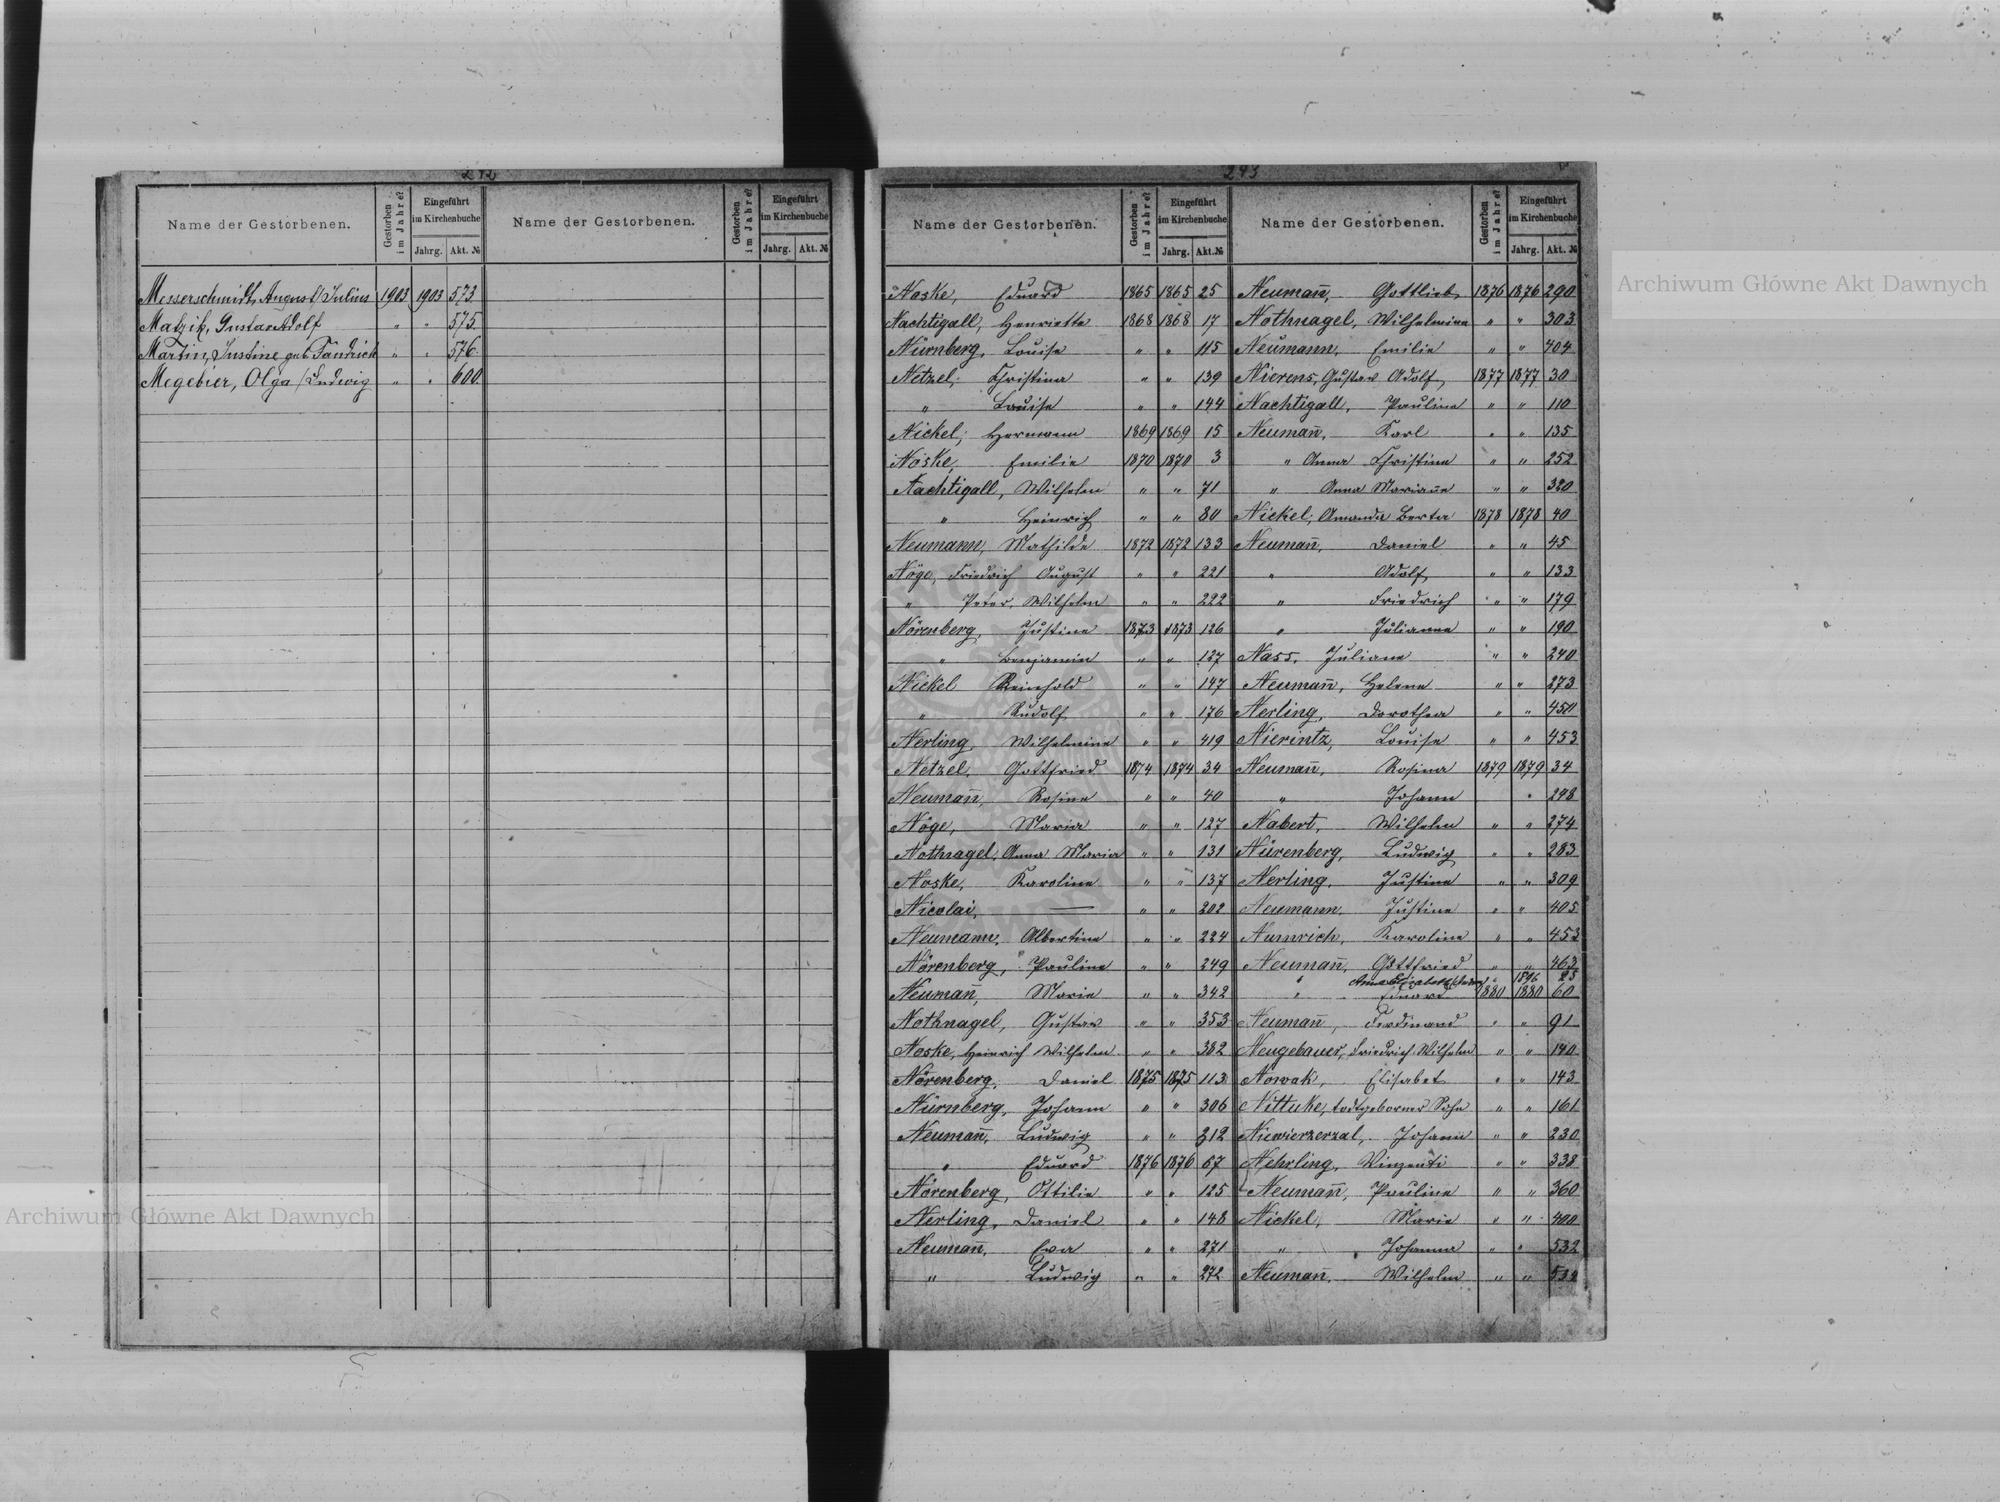 242
Name der Gestorbenen. Gestorben im Jahre? Eingeführt im Kirchenbuche Jahrg. Akt. № Name der Gestorbenen. Gestorben im Jahre? Eingeführt im Kirchenbuche Jahrg. Akt. №
Messerschmidt, August/Julius 1903 1903 573
Matzik, Gustav Adolf " " 575
Martin, Justine geb. Fandrich " " 576
Megebier, Olga/Ludwig " " 600
243
Name der Gestorbenen. Gestorben im Jahre? Eingeführt im Kirchenbuche Jahrg. Akt. №
Noske, Eduard 1865 1865 25
Nachtigall, Henriette 1868 1868 17
Nürnberg, Louise " " 115
Netzel, Christina " " 139
" Louise " " 144
Nickel, Hermann 1869 1869 15
Noske, Emilie 1870 1870 3
Nachtigall, Wilhelm " " 71
" Heinrich " " 80
Neumann, Mathilde 1872 1872 133
Nöge, Friedrich August " " 221
" Peter Wilhelm " " 222
Nörenberg, Justine 1873 1873 126
" Benjamin " " 127
Nickel Reinhold " " 147
" Rudolf " " 176
Nerling, Wilhelmine " " 419
Netzel, Gottfried 1874 1874 34
Neumañ, Rosine " " 40
Nöge, Maria " " 127
Nothnagel, Anna Maria " " 131
Noske, Karoline " " 137
Nicolai, — " " 202
Neumann, Albertine " " 224
Nörenberg, Pauline " " 249
Neumañ, Marie " " 342
Nothnagel, Gustav " " 353
Noske, Heinrich Wilhelm " " 382
Nörenberg, Daniel 1875 1875 113
Nürnberg, Johann " " 306
Neumañ, Ludwig " " 312
" Eduard 1876 1876 67
Nörenberg, Ottilie " " 125
Nerling, Daniel " " 148
Neumañ, Eva " " 271
" Ludwig " " 272
Name der Gestorbenen. Gestorben im Jahre? Eingeführt im Kirchenbuche Jahrg. Akt. №
Neumañ, Gottlieb 1876 1876 290
Nothnagel, Wilhelmine " " 303
Neumann, Emilie " " 404
Nierens, Gustav Adolf 1877 1877 30
Nachtigall, Pauline " " 110
Neumañ, Karl " " 135
" Anna Christine " " 252
" Anna Mariañe " " 320
Nickel, Amanda Berta 1878 1878 40
Neumañ, Daniel " " 45
" Adolf " " 133
" Friedrich " " 179
" Julianna " " 190
Nass, Juliane " " 240
Neumañ, Helene " " 273
Nerling, Dorothea " " 450
Nierintz, Louise " " 453
Neumañ, Rosina 1879 1879 34
" Johann " 248
Nabert, Wilhelm " " 274
Nürenberg, Ludwig " " 283
Nerling, Justine " " 309
Neumann, Justine " " 405
Numrich, Karoline " " 453
Neumañ, Gottfried " " 463
" Anna Elisabeth " 1896 25
" Eduard 1880 1880 60
Neumañ, Ferdinand " " 91
Neugebauer, Friedrich Wilhelm " " 140
Nowak, Elisabet " " 143
Nittuke, todtgeborner Sohn " " 161
Niewierzerzal, Johann " " 230
Nehrling, Vinzenti " " 338
Neumañ, Pauline " " 360
Nickel, Marie " " 400
" Johanna " " 532
Neumañ, Wilhelm " " 532
Archiwum Główne Akt Dawnych
Archiwum Główne Akt Dawnych